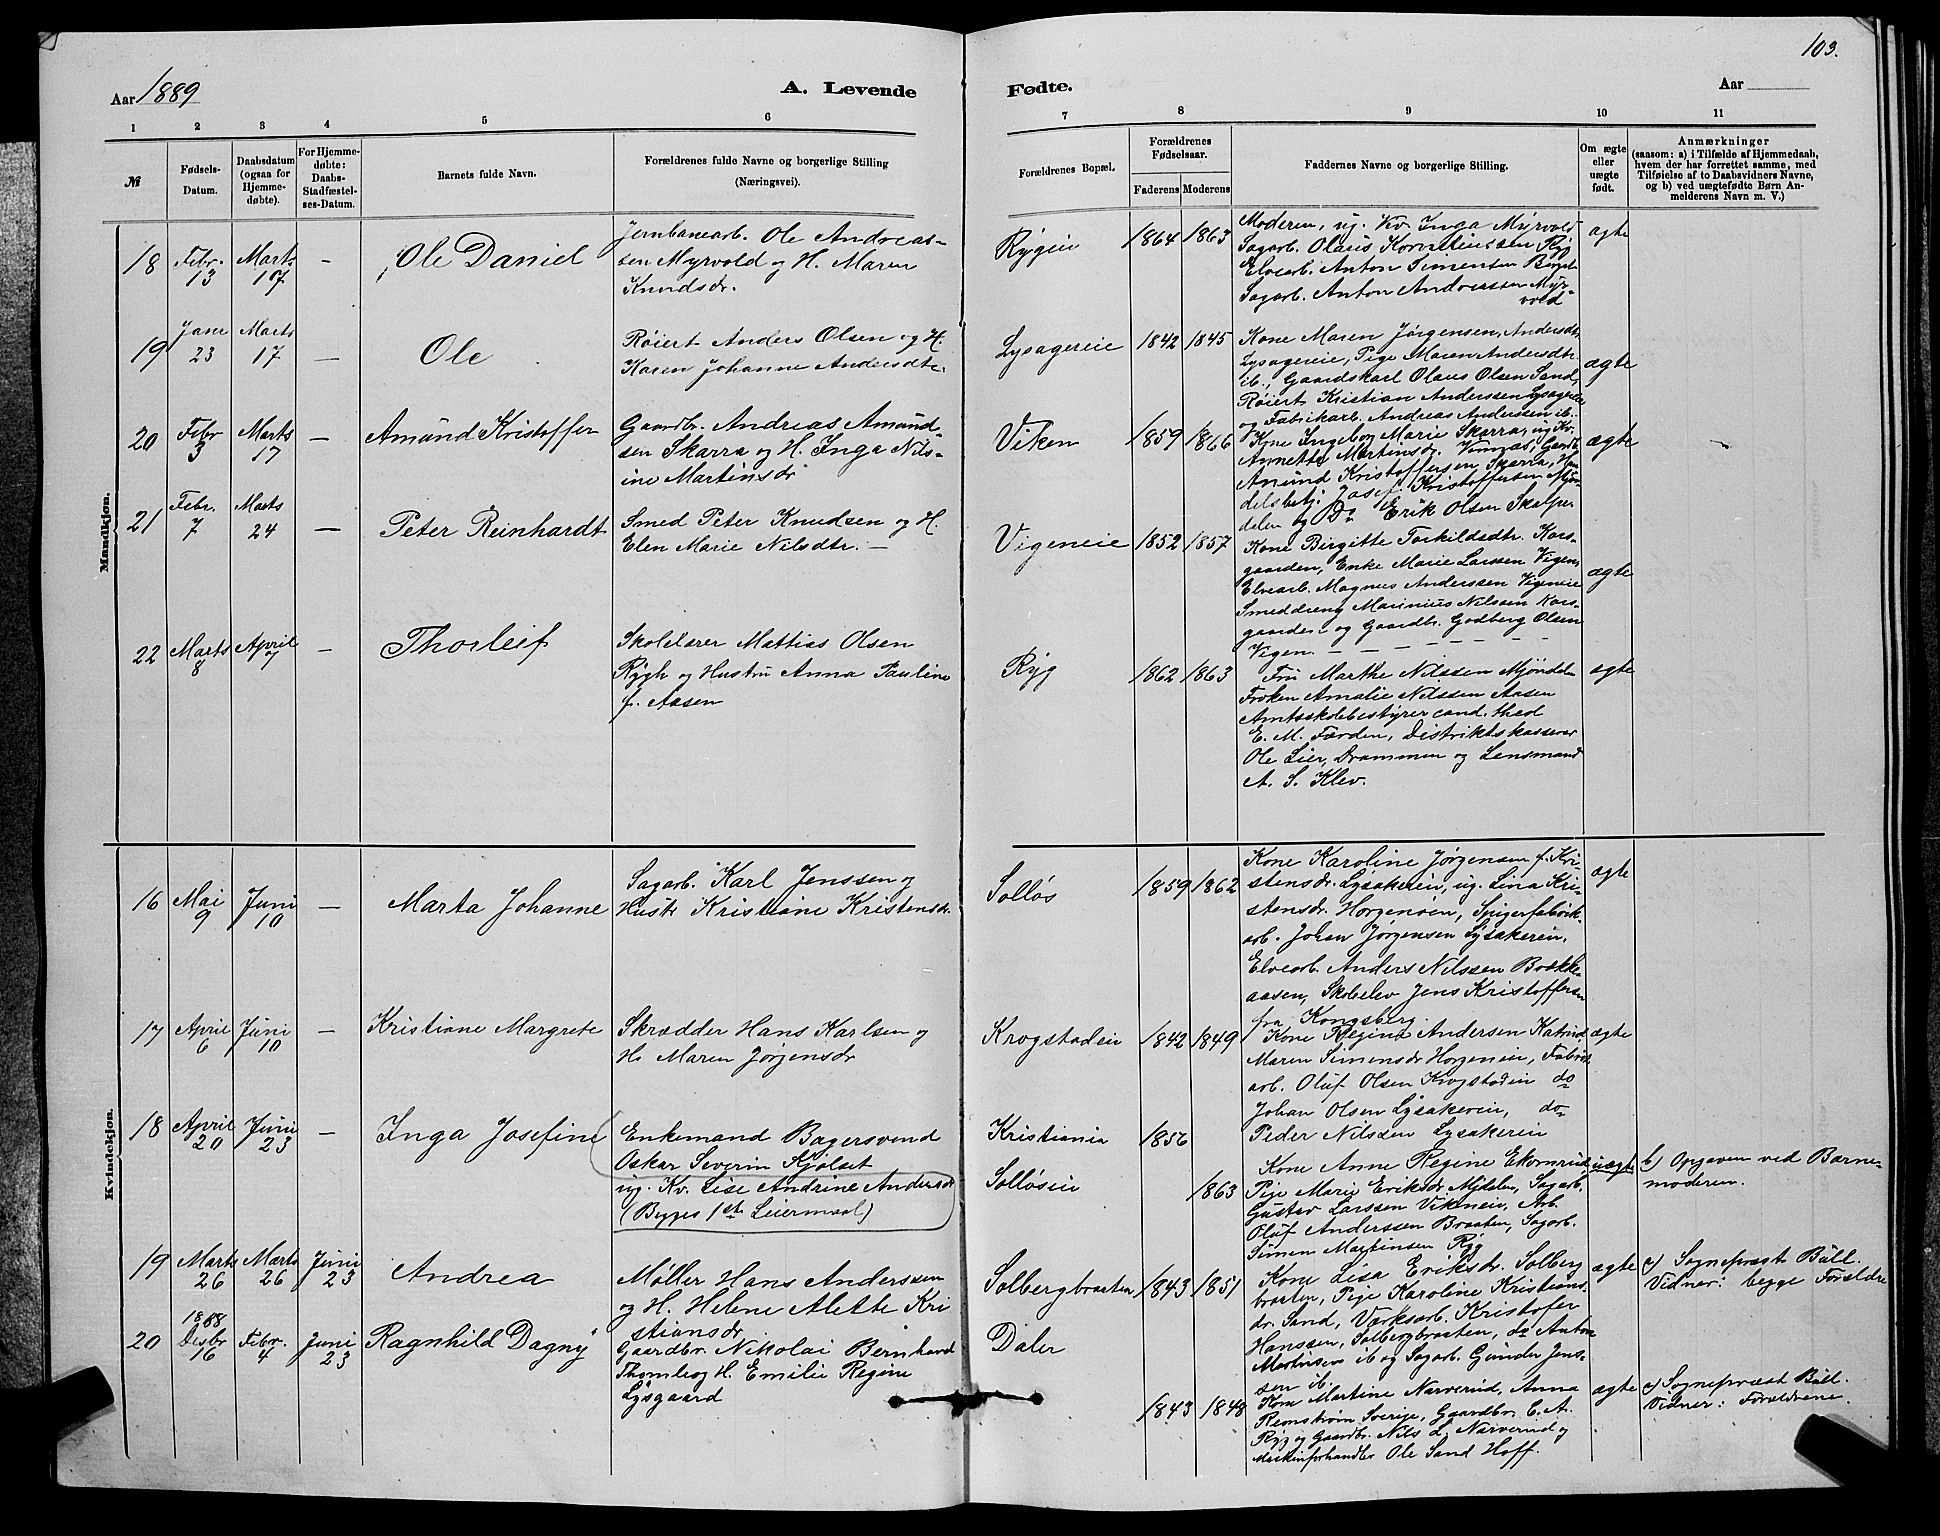 103.
Aar 1889
A. Levende
Fødte.
Aar
1 2 3 4 5 6 7 8 9 10 11
№
Fødsels-
Datum.
Daabsdatum
(ogsaa for
Hjemme-
døbte).
For Hjemme-
døbte:
Daabs-
Stadfæstel-
ses-Datum.
Barnets fulde Navn.
Forældrenes fulde Navne og borgerlige Stilling
(Næringsvei).
Forældrenes Bopæl.
Forældrenes
Fødselsaar.
Faderens Moderens
Faddernes Navne og borgerlige Stilling.
Om ægte
eller
uægte
født.
Anmærkninger
(saasom: a) i Tilfælde af Hjemmedaab,
hvem der har forrettet samme, med
Tilføielse af to Daabsvidners Navne,
og b) ved uægtefødte Børn An-
melderens Navn m. V.)
Mandkjøn.
18 Febr. 13 Marts 17 — Ole Daniel
Jernbanearb. Ole Andreas-
sen Myrvold og H. Maren
Knudsdr.
Rygeie 1864 1863
Moderen, ug. Kv. Inga Myrvold
Sagarb. Olaus Ryg
Elvearb. Anton Simensen
Sagarb. Anton Andreassen Myr-
vold
ægte
19 Janr 23 Marts 17 — Ole
Røiert Anders Olsen og H.
Karen Johanne Andersdtr.
Lysagereie 1842 1845
Kone Maren Jørgensen, Andersdtr.
Lysagereie, Pige Maren Andersdtr
ib., Gaardskarl Olaus Olsen Sand,
Røiert Kristian Anderssen Lysagereie
og Fabrikarb. Andreas Anderssen ib.
ægte
20 Febr 3 Marts 17 — Amund Kristoffer
Gaardbr. Andreas Amund-
sen Skarra og H. Inga Nils-
ine Martinsdr
Viken 1859 1866
Kone Ingeborg Marie Skarra, ug Kv.
Annette Martinsdr. Gaardb.
Amund Kristoffersen Skarra, Han-
delsbetj. Josef Kristoffersen Mjøn-
dalen og Do Erik Olsen
ægte
21 Febr. 7 Marts 24 — Peter Reinhardt
Smed Peter Knudsen og H.
Elen Marie Nilsdtr. —
Vigeneie 1852 1857
Kone Birgitte Torkildsdtr. Kors-
gaarden, Enke Marie Larssen Vigen,
Elvearb. Magnus Anderssen Vigeneie
Smeddreng Marinius Nilssen Kors-
gaarden og Gaardbr. Godberg Olsen
Vigen. — — — — —
ægte
22 Marts 8 April 7 — Thorleif
Skolelærer Mattias Olsen
Rygh og Hustru Anna Pauline
f. Aasen
Ryg 1862 1863
Fru Marthe Nilssen Mjøndalen
Frøken Amalie Nilssen Aasen
Amtsskolebestyrer cand. theol
E. M. Færden, Distriktskasserer
Ole Lier, Drammen og Lensmand
A. S. Klev.
ægte
Kvindekjøn.
16 Mai 9 Juni 10 — Marta Johanne
Sagarb. Karl Jenssen og
Hustr Kristiane Kristensdr.
Solløs 1859 1862
Kone Karoline Jørgensen f. Kri-
stensdr. Lysakereien, ug. Lina Kri-
stensdr. Horgenøien, Spigerfabrik-
arb. Johan Jørgensen Lysakereien,
Elvearb. Anders Nilssen Bække-
aasen, Skoleelev Jens Kristoffersen
fra Kongsberg.
ægte
17 April 6 Juni 10 — Kristiane Margrete
Skrædder Hans Karlsen og
H. Maren Jørgensdr
Krogstadeie 1842 1849
Kone Regine Andersen
Maren Simensdr Horgeneie, Fabrik-
arb. Oluf Olsen Krogstadeie do
Johan Olsen Lysakereien, do-
Peder Nilssen Lysakereien
ægte
18 April 20 Juni 23 — Inga Josefine
Enkemand Bagersvend
Oskar Severin Kjølset
ug. Kv. Lise Andrine Andersdr
(Begges 1st Leiermaal)
Kristiania 1856
Solløseie 1863
Kone Anne Regine Ekornrud
Pige Marie Eriksdr Mjdalen, Sagarb.
Gustav Larssen Vikneie, Arb.
Oluf Anderssen Braaten, Sagarb.
Simen Martinsen Ryg
uægte
b) Opgaven ved Barne-
moderen.
19 Marts 26 Marts 26 Juni 23 Andrea
Møller Hans Anderssen
og H. Helene Alette Kri
stiansdr
Solbergbraaten 1843 1851
Kone Lisa Eriksdr. Solberg
braaten, Pige Karoline Kristians-
dr. Sand, Værksarb. Kristofer
Hanssen, Solbergbraaten, do Anton
Martinsen ib og Sagarb. Gunder Jens-
sen ib.
ægte
a) Sogneprest Bull.
Vidner: begge Forældre
20 1888 Desbr 16 Febr. 4 Juni 23 Ragnhild Dagny
Gaardbr. Nikolai Bernhard
Thomle og H. Emilie Regine
Lysgaard
Daler
1843 1848
Kone Martine Narverud, Anna
Remstrøm Sverige, Gaardbr. C. A.
Ryg og Gaardbr. Nils L. Narverud og
Maskinforhandler Ole Sand Hoff.
ægte
a) Sogneprest Bull.
Vidner: Forældrene.